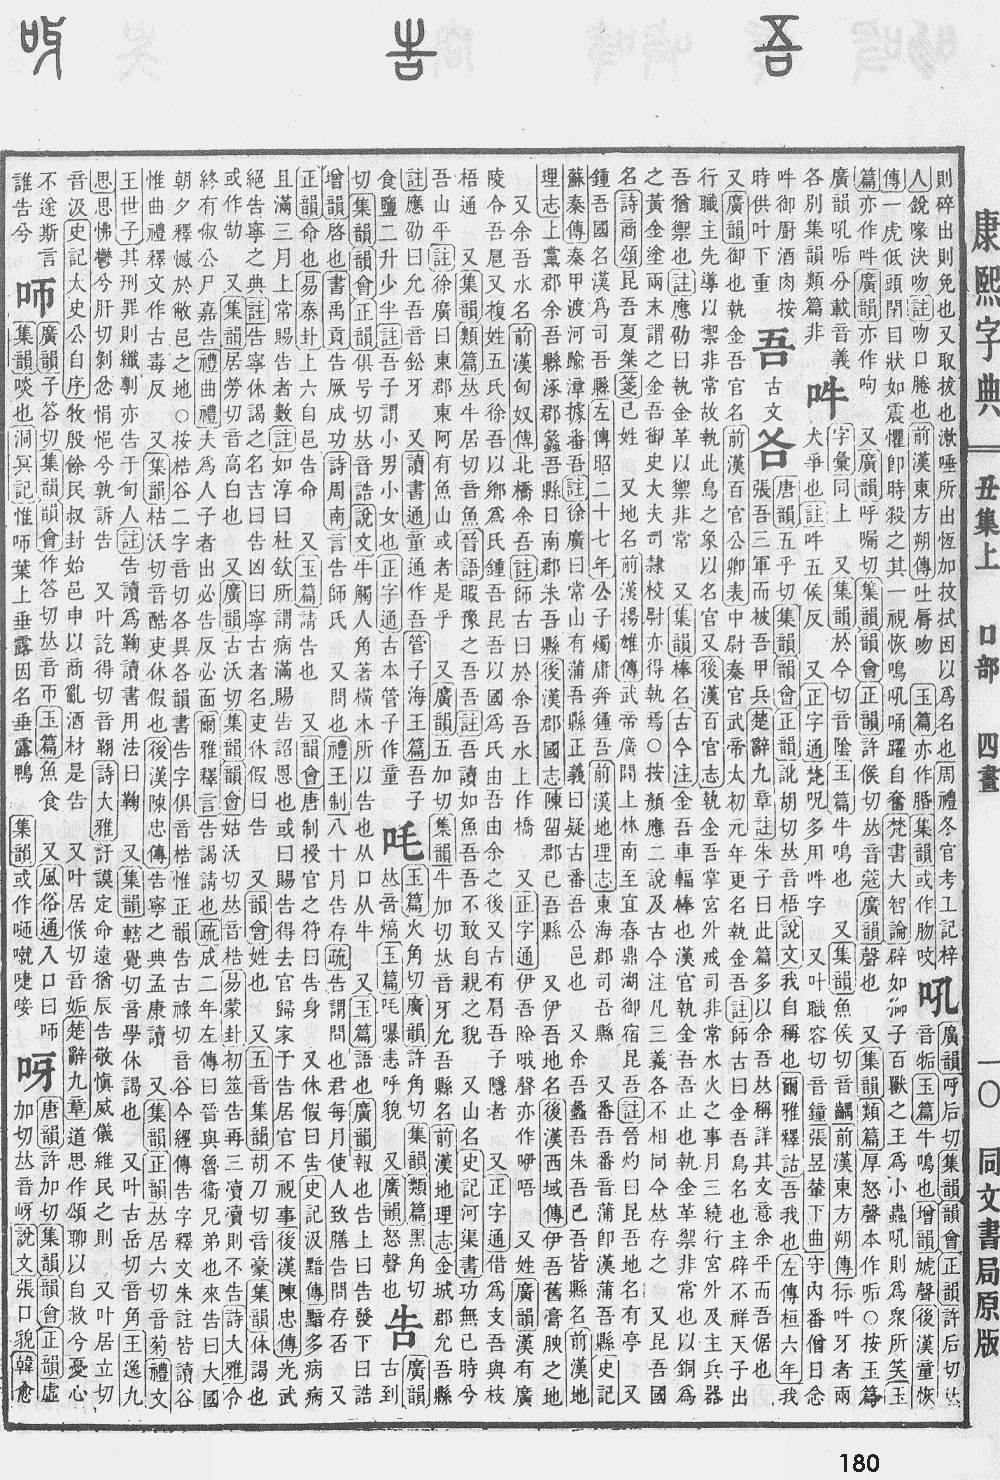 吾 告 㕷
康熙字典 丑集上 口部 四畫 一〇 同文書局原版
則碎出則免也又取拔也漱唾所出恆加技拭因以爲名也周禮冬官考工記梓
人銳喙決吻註吻口腃也前漢東方朔傳吐脣吻 玉篇亦作脗集韻或作肳呅
吼
廣韻呼后切集韻韻會正韻許后切𠀤
音㸸玉篇牛鳴也增韻虓聲後漢童恢
傳一虎低頭閉目狀如震懼卽時殺之其一視恢鳴吼踊躍自奮梵書大智論辟如師子百獸之王爲小蟲吼則爲衆所笑玉
篇亦作吽廣韻亦作呴 又廣韻呼嘱切集韻韻會正韻許候切𠀤音蔻廣韻聲也 又集韻類篇厚怒聲本作㖃○按玉篇
廣韻吼㖃分載音義
各別集韻類篇非
吽
字彙同上 又集韻於今切音陰玉篇牛鳴也 又集韻魚侯切音齵前漢東方朔傳狋吽牙者兩
犬爭也註吽五侯反 又正字通梵呪多用吽字 又叶職容切音鐘張昱輦下曲守內番僧日念
吽御廚酒肉按
時供叶下重
吾
古文
㕦
唐韻五乎切集韻韻會正韻訛胡切𠀤音梧說文我自稱也爾雅釋詁吾我也左傳桓六年我
張吾三軍而被吾甲兵楚辭九章註朱子曰此篇多以余吾𠀤稱詳其文意余平而吾倨也
又廣韻御也執金吾官名前漢百官公卿表中尉秦官武帝太初元年更名執金吾註師古曰金吾鳥名也主辟不祥天子出
行職主先導以禦非常故執此鳥之象以名官又後漢百官志執金吾掌宮外戒司非常水火之事月三繞行宮外及主兵器
吾猶禦也註應劭曰執金革以禦非常 又集韻棒名古今注金吾車輻棒也漢官執金吾吾止也執金革禦非常也以銅爲
之黃金塗兩末謂之金吾御史大夫司隸校尉亦得執焉○按顏應二說及古今注凡三義各不相同今𠀤存之 又昆吾國
名詩商頌昆吾夏桀箋己姓 又地名前漢揚雄傳武帝廣開上林南至宜春鼎湖御宿昆吾註晉灼曰昆吾地名有亭 又
鍾吾國名漢爲司吾縣左傳昭二十七年公子燭庸奔鍾吾前漢地理志東海郡司吾縣 又番吾番音蒲卽漢蒲吾縣史記
蘇秦傳秦甲渡河踰漳據番吾註徐廣曰常山有蒲吾縣正義曰疑古番吾公邑也 又余吾蠡吾朱吾已吾皆縣名前漢地
理志上黨郡余吾縣涿郡蠡吾縣日南郡朱吾縣後漢郡國志陳留郡已吾縣 又伊吾地名後漢西域傳伊吾舊膏腴之地
又余吾水名前漢匈奴傳北橋余吾註師古曰於余吾水上作橋 又正字通伊吾唫哦聲亦作咿唔 又姓廣韻漢有廣
陵令吾扈又複姓五氏徐吾以鄉爲氏鍾吾昆吾以國爲氏由吾由余之後又古有肩吾子隱者 又正字通借爲支吾與枝
梧通 又集韻類篇𠀤牛居切音魚晉語暇豫之吾吾註吾讀如魚吾吾不敢自親之貌 又山名史記河渠書功無已時兮
吾山平註徐廣曰東郡東阿有魚山或者是乎 又廣韻五加切集韻牛加切𠀤音牙允吾縣名前漢地理志金城郡允吾縣
註應劭曰允吾音鈆牙 又讀書通童通作吾管子海王篇吾子
食鹽二升少半註吾子謂小男小女也正字通古本管子作童
玉篇火角切廣韻許角切集韻類篇黑角切
𠀤音熇玉篇曝恚呼貌 又廣韻怒聲也
告
廣韻
古到
切集韻韻會正韻俱号切𠀤音誥說文牛觸人角著橫木所以告也从口从牛 又玉篇語也廣韻報也告上曰告發下曰誥
增韻啓也書禹貢告厥成功詩周南言告師氏 又問也禮王制八十月告存疏告謂問也君每月使人致膳告問存否 又
正韻命也易泰卦上六自邑告命 又玉篇請告也 又韻會唐制授官之符曰告身 又休假曰告史記汲黯傳黯多病病
且滿三月上常賜告者數註如淳曰杜欽所謂病滿賜告詔恩也或曰賜告得去官歸家予告居官不視事後漢陳忠傳光武
絕告寧之典註告寧休謁之名吉曰告凶曰寧古者名吏休假曰告 又韻會姓也 又五音集韻胡刀切音豪集韻休謁也
或作勂 又集韻居勞切音高白也 又廣韻古沃切集韻韻會姑沃切𠀤音梏易蒙卦初筮告再三瀆瀆則不告詩大雅令
終有俶公尸嘉告禮曲禮夫爲人子者出必告反必面爾雅釋言告謁請也疏成二年左傳曰晉與魯衞兄弟也來告曰大國
朝夕釋憾於敝邑之地○按梏谷二字音切各異各韻書告字俱音梏惟正韻告古祿切音谷今經傳告字釋文朱註皆讀谷
惟曲禮釋文作古毒反 又集韻枯沃切音酷吏休假也後漢陳忠傳告寧之典孟康讀 又集韻正韻𠀤居六切音菊禮文
王世子其刑罪則纖剸亦告于甸人註告讀爲鞠讀書用法曰鞠 又集韻轄覺切音學休謁也 又叶古岳切音角王逸九
思思怫鬱兮肝切剝忿悁悒兮孰訴告 又叶訖得切音䩯詩大雅訏謨定命遠猶辰告敬愼威儀維民之則 又叶居立切
音汲史記太史公自序牧殷餘民叔封始邑申以商亂酒材是告 又叶居候切音姤楚辭九章道思作頌聊以自救兮憂心
不遂斯言
誰告兮
㕷
廣韻子答切集韻韻會作答切𠀤音帀玉篇魚食 又風俗通入口曰㕷
集韻啖也洞冥記惟㕷葉上垂露因名垂露鴨 集韻或作噈啑唼
呀
唐韻許加切集韻韻會正韻虛
加切𠀤音岈說文張口貌韓愈
180